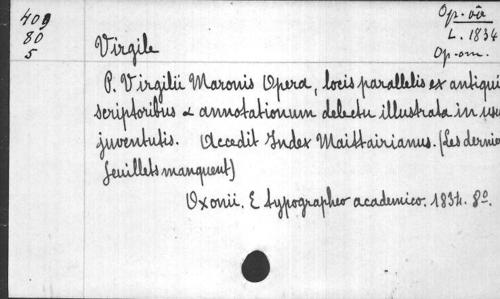 409
80
5
Op. vir
L. 1834
Op. om.
Virgile
P. Virgilii Maronis Opera, locis parallelis ex antiqui
scriptoribus & annotationum delectu illustrata in usu
juventutis. Accedit Index Maittairianus. (Les dernie
feuillets manquent)
Oxonii. E typographeo academico. 1834. 8º.